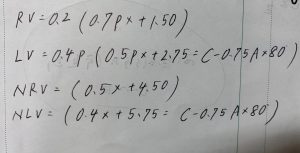 RV = 0.2 (0.7px + 1.50)
LV = 0.4p (0.5px + 2.75 = C - 0.75A x 80)
NRV = (0.5x + 4.50)
NLV = (0.4x + 5.75 = C - 0.75A x 80)